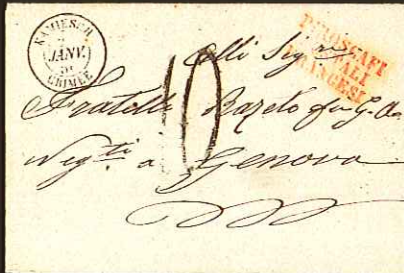 KAMIESCH
JANV.
CRIMÉE
PIROSCAFI
POSTALI
FRANCESI
Alli Sigri
10
Fratelli
Negti a Genova